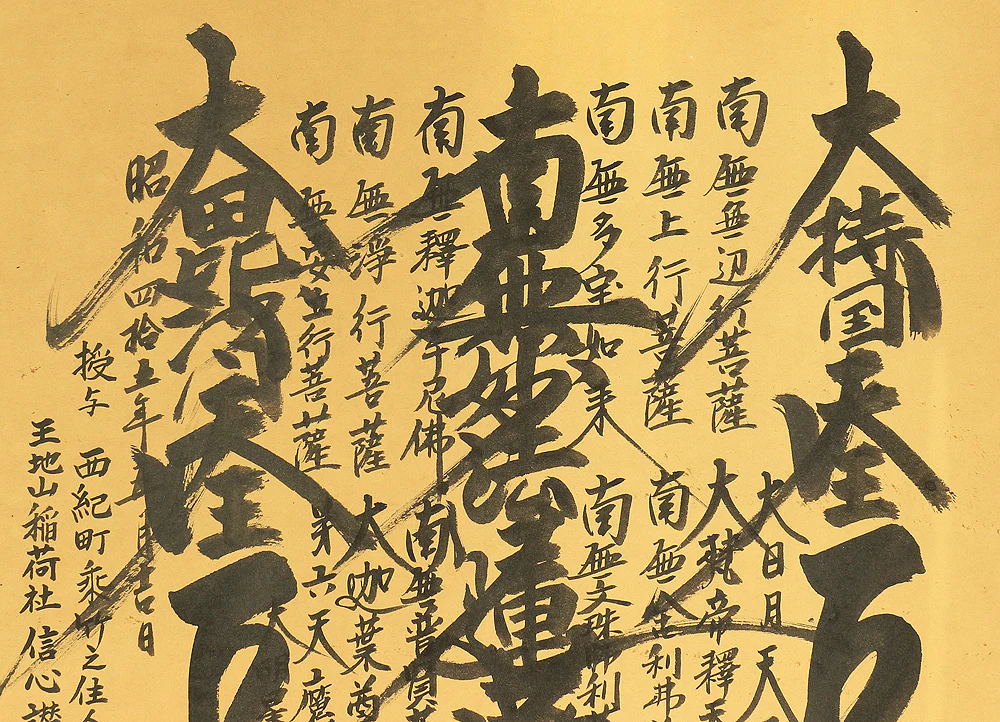 大持国天王
南無無辺行菩薩
大日月天
南無上行菩薩
大梵帝釋天
南無多宝如来
南無舍利弗
南無文殊師利
南無妙法蓮
南無釋迦牟尼佛
南無普賢菩
南無浄行菩薩
大迦葉尊
南無安立行菩薩
第六天魔
大毘沙門天王
昭和四拾五年五月吉日
授与
西紀町乘竹之住人
王地山稲荷社
信心